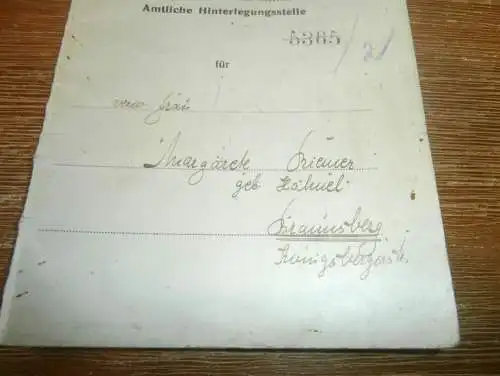 Amtliche Hinterlegungsstelle
5365 / 21
für
Frau
Margarete Kriemer
geb. Hähnel
Braunsberg
Königsbergerstr.